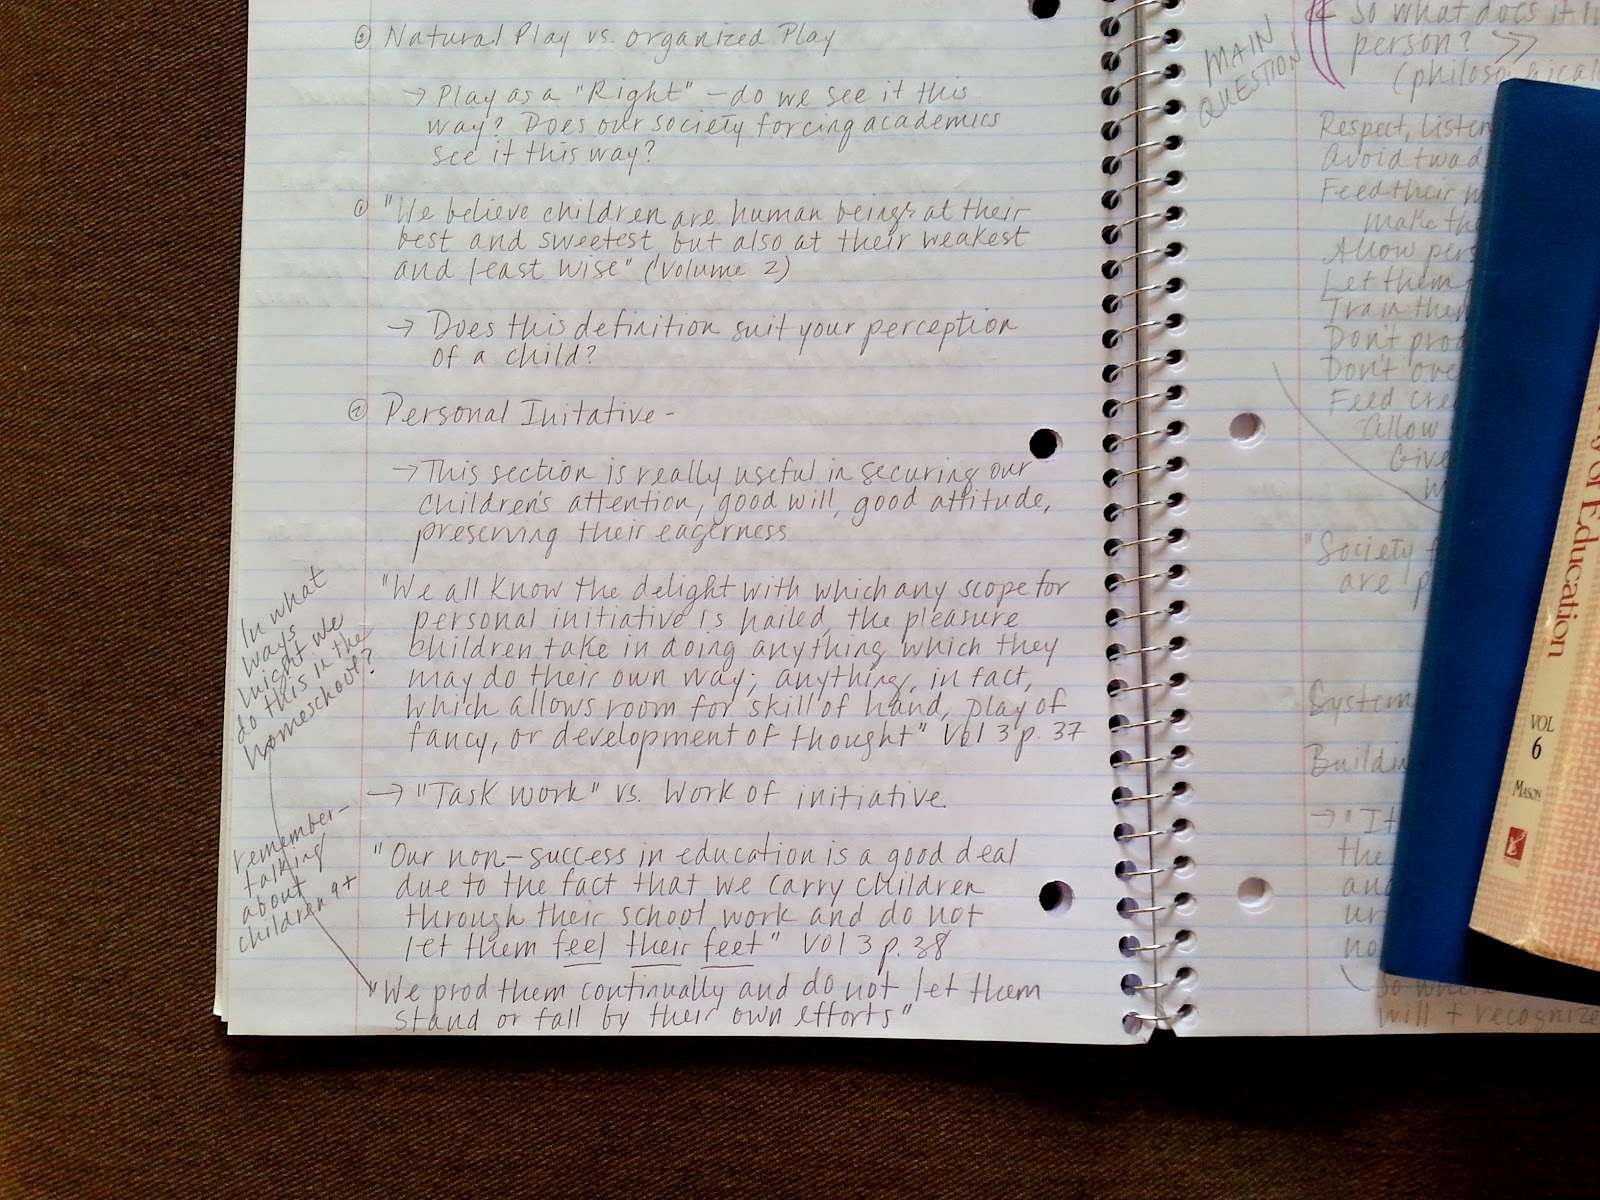 Natural Play vs. organized Play
→ Play as a "Right" - do we see it this
way? Does our society forcing academics
see it this way?
"We believe children are human beings at their
best and sweetest but also at their weakest
and least wise" (Volume 2)
→ Does this definition suit your perception
of a child?
② Personal Initative -
→ This section is really useful in securing our
children's attention, good will, good attitude,
preserving their eagerness
"We all know the delight with which any scope for
personal initiative is hailed, the pleasure
children take in doing anything which they
may do their own way; anything, in fact,
which allows room for skill of hand, play of
fancy, or development of thought" Vol 3 p. 37
→ "Task work" vs. Work of initiative.
"Our non-success in education is a good deal
due to the fact that we carry children
through their school work and do not
let them feel their feet" Vol 3 p. 38
"We prod them continually and do not let them
stand or fall by their own efforts"
In what
ways
might we
do this in the
homeschool?
remember-
talking
about
children 9+
MAIN
QUESTION
So what does it
person? >>
(philosophical
Respect, listen
Avoid twad
Feed their
make the
Allow pers
Let them
Train them
Don't prod
Don't ove
Feed cre
allow
Give
"Society
are p
System
Buildin
→ "It
the
and
un
no
So where
will + recognize
y of Education
VOL
6
MASON